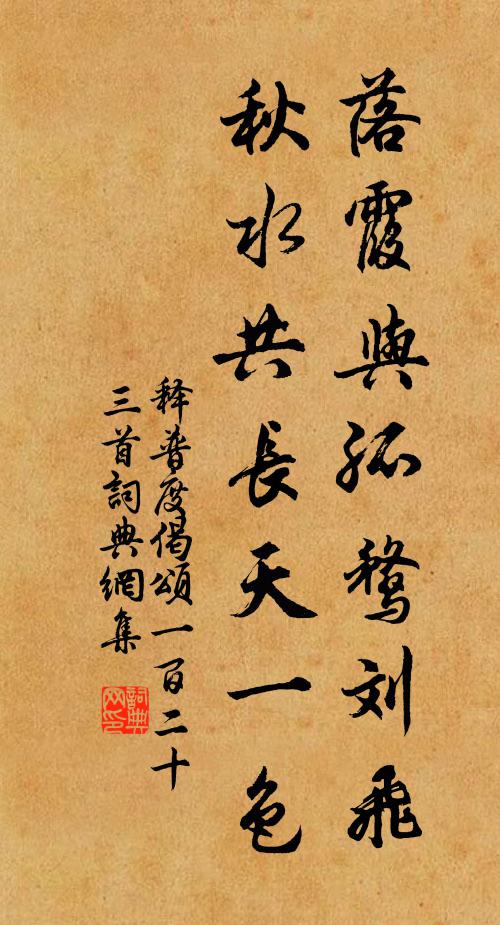 落霞與孤鶩刘飛
秋水共長天一色
释普度偈頌一百二十
三首詞典網集
詞典网印